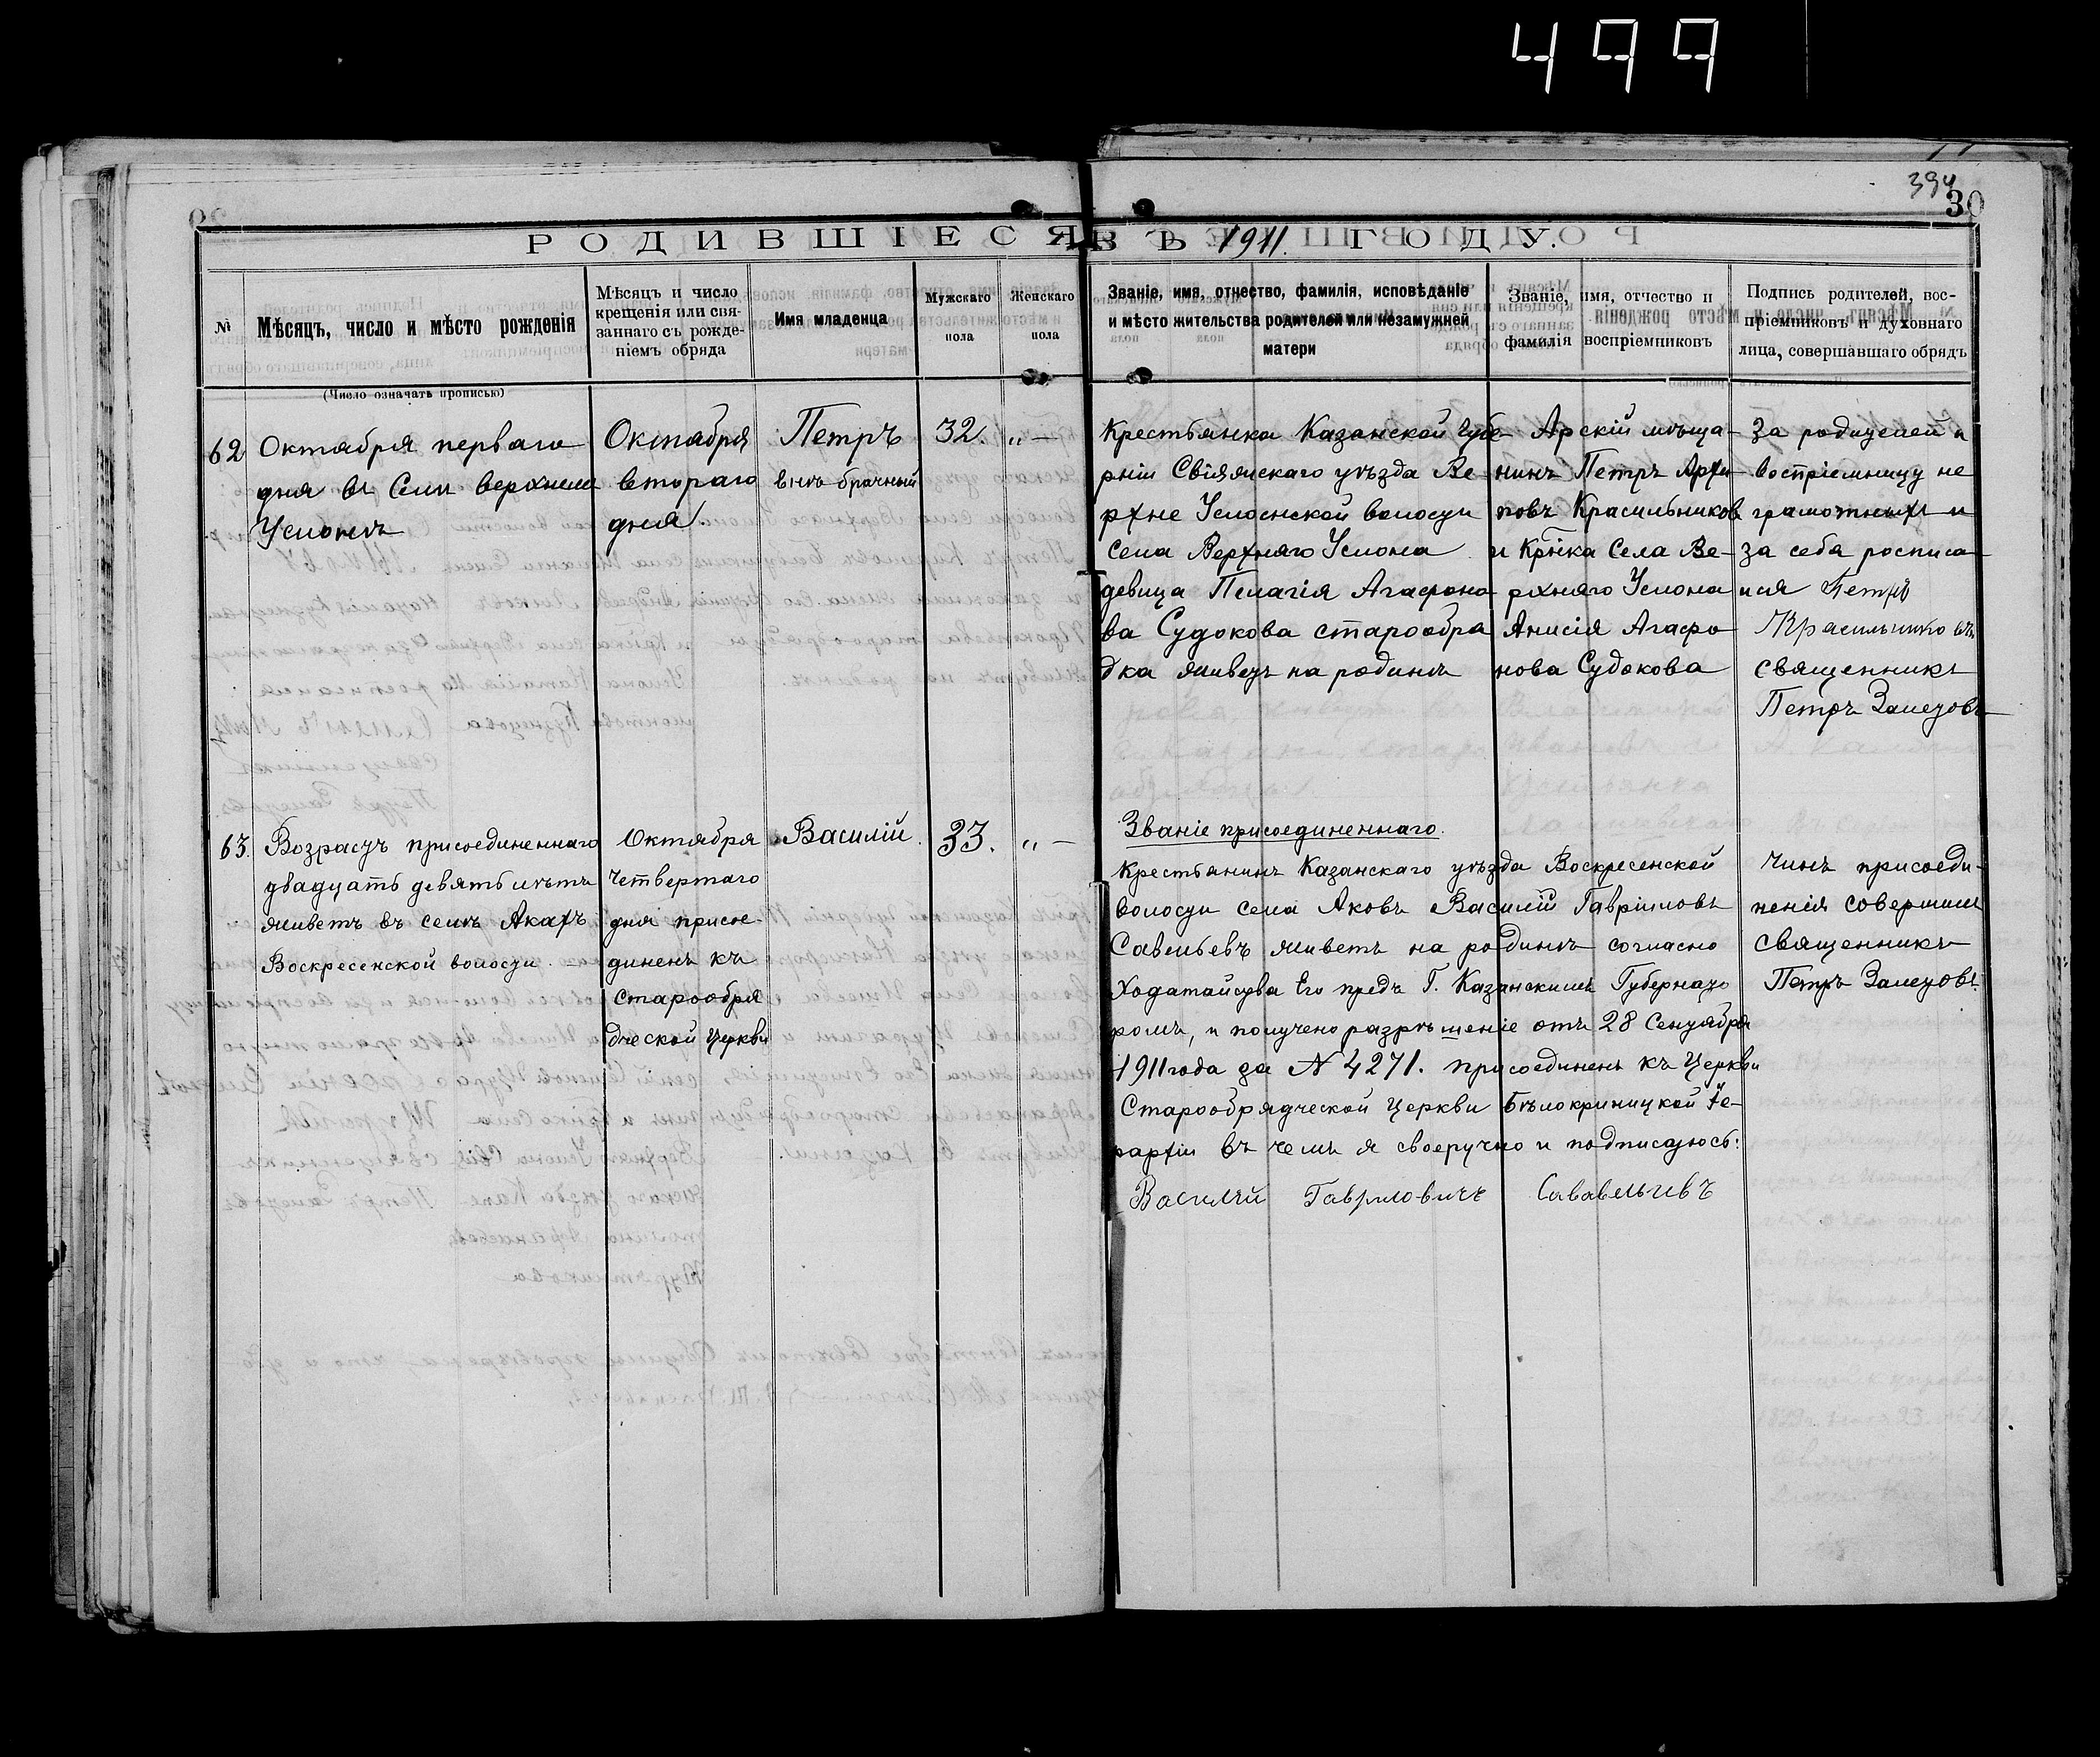 499
394
30
РОДИВШІЕСЯ ВЪ 1911 ГОДУ.
№
Мѣсяцъ, число и мѣсто рожденія
Мѣсяцъ и число
крещенія или свя-
заннаго съ рожде-
ніемъ обряда
Имя младенца
Мужскаго
пола
Женскаго
пола
Званіе, имя, отчество, фамилія, исповѣданіе
и мѣсто жительства родителей или незамужней
матери
Званіе, имя, отчество и
фамилія воспріемниковъ
Подпись родителей, вос-
пріемниковъ и духовнаго
лица, совершавшаго обрядъ
(Число означать прописью)
62
Октября перваго
дня въ Селѣ верхнемъ
Услонѣ
Октября
втораго
дня.
Петръ
внѣ брачный
32. „ —
Крестьянка Казанской Губе-
рніи Свіяжскаго уѣзда Ве-
рхне Услонской волости
села Верхняго Услона
девица Пелагія Агафоно-
ва Судокова старообря
дка живетъ на родинѣ
Арскій мѣща-
нинъ Петръ Архи-
повъ Красильников
и Кр҃нка Села Ве-
рхняго Услона
Анисія Агафо
нова Судокова
За родителей и
воспріемницу не
грамотныхъ и
за себя росписа-
лся Петръ
Красильниковъ
священникъ
Петръ Залетовъ
63.
Возрастъ присоединеннаго
двадцать девять лѣтъ
живетъ въ селѣ Акахъ
Воскресенской волости. —
Октября
четвертаго
дня присое-
диненъ къ
старообря
дческой Церкви
Василій.
33. „ —
Званіе присоединеннаго.
Крестьянинъ Казанскаго уѣзда Воскресенской
волости села Аковъ Василій Гавріиловъ
Савельевъ живетъ на родинѣ согласно
Ходатайства Его предъ Г. Казанскимъ Губернато
ромъ, и получено разрѣшеніе отъ 28 Сентября
1911 года за № 4271. присоединенъ къ Церкви
Старообрядческой Церкви Бѣлокриницкой Іе-
рархіи въ чемъ я своеручно и подписуюсь:
Василий Гавриловичъ Сававельивъ
Чинъ присоеди-
ненія совершилъ
священникъ
Петръ Залетовъ.